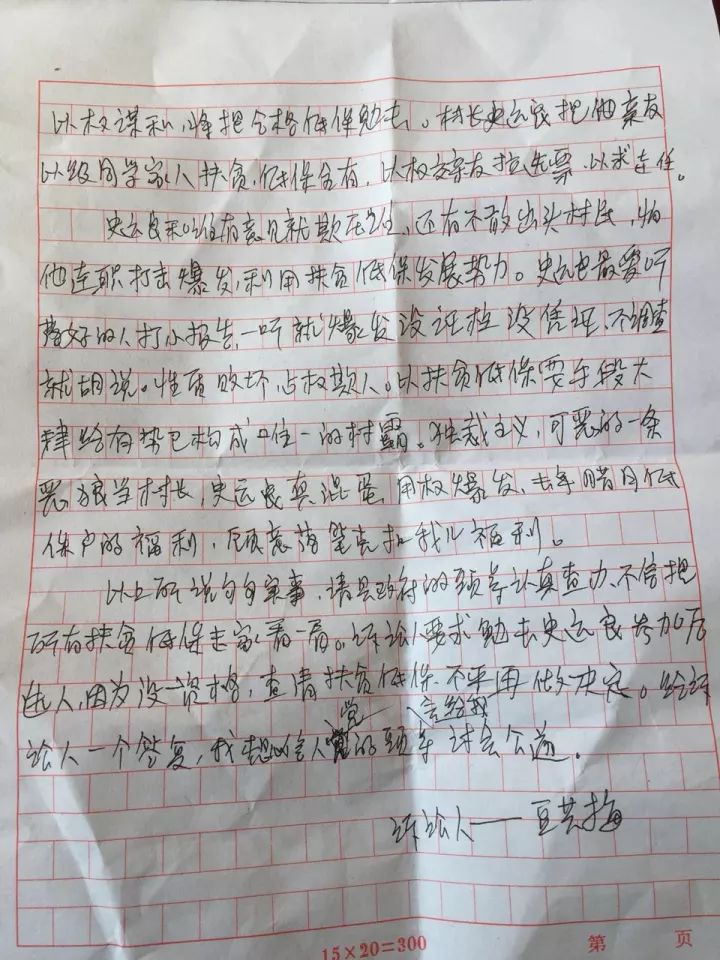 以权谋私,将把合格低保免去。村长史远良把他亲友
以级同学家人扶贫,低保全有,以权交亲友拉选票,以求连任。
史远良和谁有意见就欺压谁,还有不敢出头村民,怕
他连职打击爆发,利用扶贫低保发展势力。史远良最爱听
好的人打小报告,一听就爆发没证柱没凭证,不调查
就胡说。性质败坏,占权欺人。以扶贫低保要手段大
肆给有势已构成唯一的村霸。独裁主义,可恶的一条
恶狼当村长,史远良真混蛋,用权爆发,去年腊月低
保户的福利,故意落笔克扣我儿福利。
以上所说句句实事,请县政府的领导认真查办,不信把
所有扶贫低保走家看一看。诉讼人要求免去史远良参加后
选人,因为没一资格,查清扶贫低保,不平再做决定。给诉
讼人一个答复,我想信人党的领导讨会公道。
党 言给我
诉讼人——豆芸梅
15×20=300 第 页